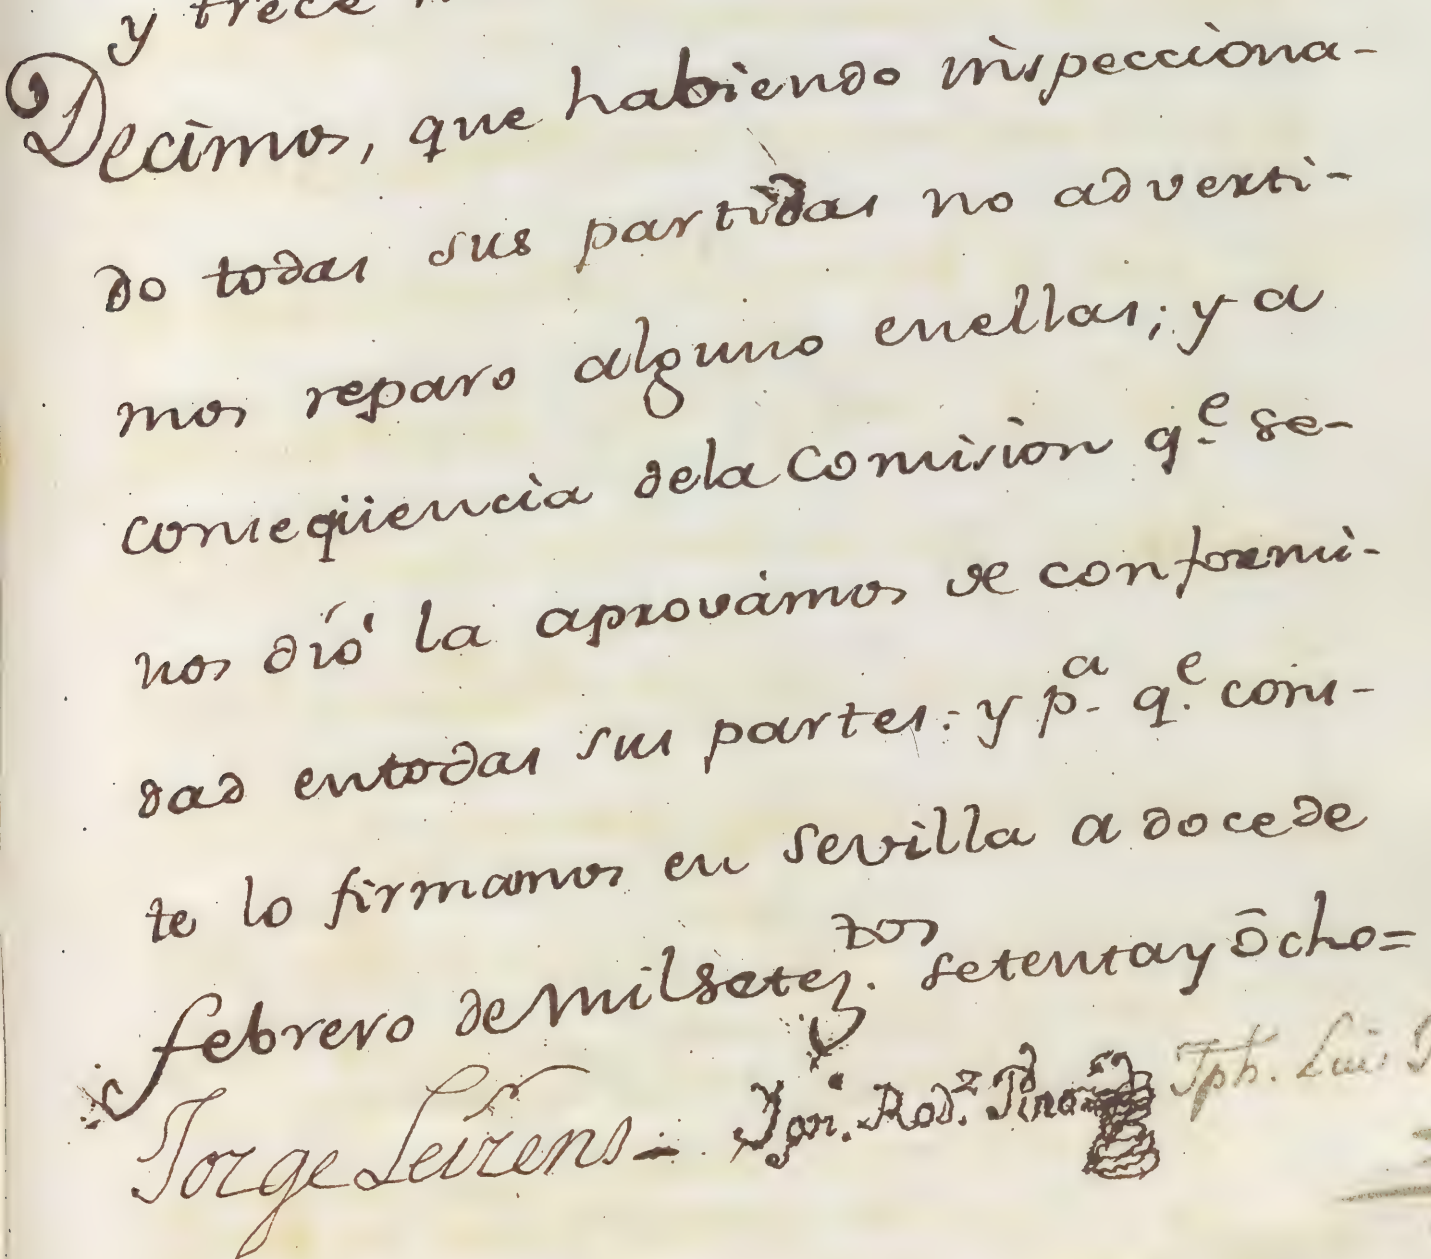 y trece
Decimos, que habiendo inspecciona-
do todas sus partidas no adverti-
mos reparo alguno enellas; y a
conseqüencia dela Comision q.e se-
nos dió la aprovámos de conformi-
dad entodas sus partes: y p.a q.e cons-
te lo firmamos en Sevilla a docede
febrero de Milsetez.tos setentay ôcho=
Jorge Leirens - Ign.o Rod.z Pino Jph. Luis